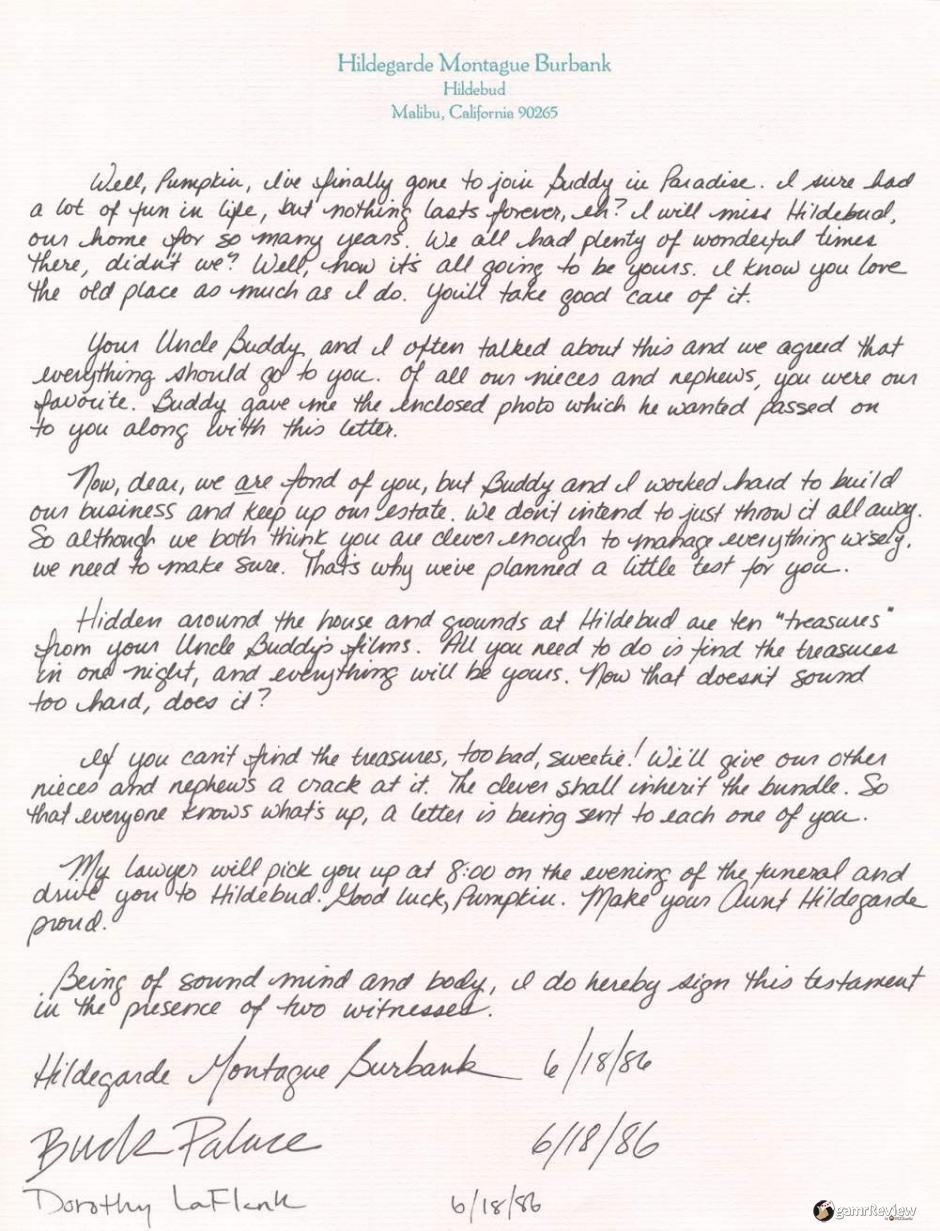 Hildegarde Montague Burbank
Hildebud
Malibu, California 90265
Well, Pumpkin, I've finally gone to join Buddy in Paradise. I sure had
a lot of fun in life, but nothing lasts forever, eh? I will miss Hildebud,
our home for so many years. We all had plenty of wonderful times
there, didn't we? Well, now it's all going to be yours. I know you love
the old place as much as I do. You'll take good care of it.
Your Uncle Buddy and I often talked about this and we agreed that
everything should go to you. Of all our nieces and nephews, you were our
favorite. Buddy gave me the enclosed photo which he wanted passed on
to you along with this letter.
Now, dear, we are fond of you, but Buddy and I worked hard to build
our business and keep up our estate. We don't intend to just throw it all away.
So although we both think you are clever enough to manage everything wisely,
we need to make sure. That's why we've planned a little test for you.
Hidden around the house and grounds at Hildebud are ten "treasures"
from your Uncle Buddy's films. All you need to do is find the treasures
in one night, and everything will be yours. Now that doesn't sound
too hard, does it?
If you can't find the treasures, too bad, sweetie! We'll give our other
nieces and nephews a crack at it. The clever shall inherit the bundle. So
that everyone knows what's up, a letter is being sent to each one of you.
My lawyer will pick you up at 8:00 on the evening of the funeral and
drive you to Hildebud. Good luck, Pumpkin. Make your Aunt Hildegarde
proud.
Being of sound mind and body, I do hereby sign this testament
in the presence of two witnesses.
Hildegarde Montague Burbank 6/18/86
Buck Palace 6/18/86
Dorothy LaFlenk 6/18/86
gamrReview